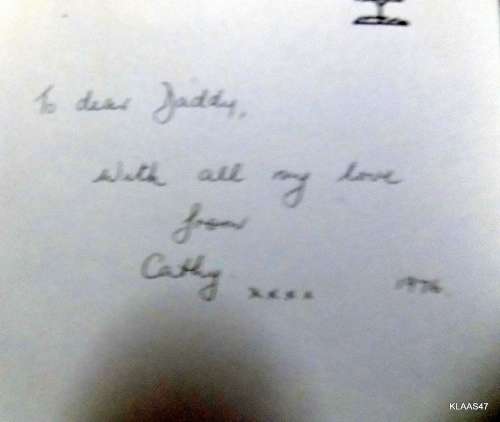 To dear Daddy,
with all my love
from
Cathy xxxx 1976.
KLAAS47